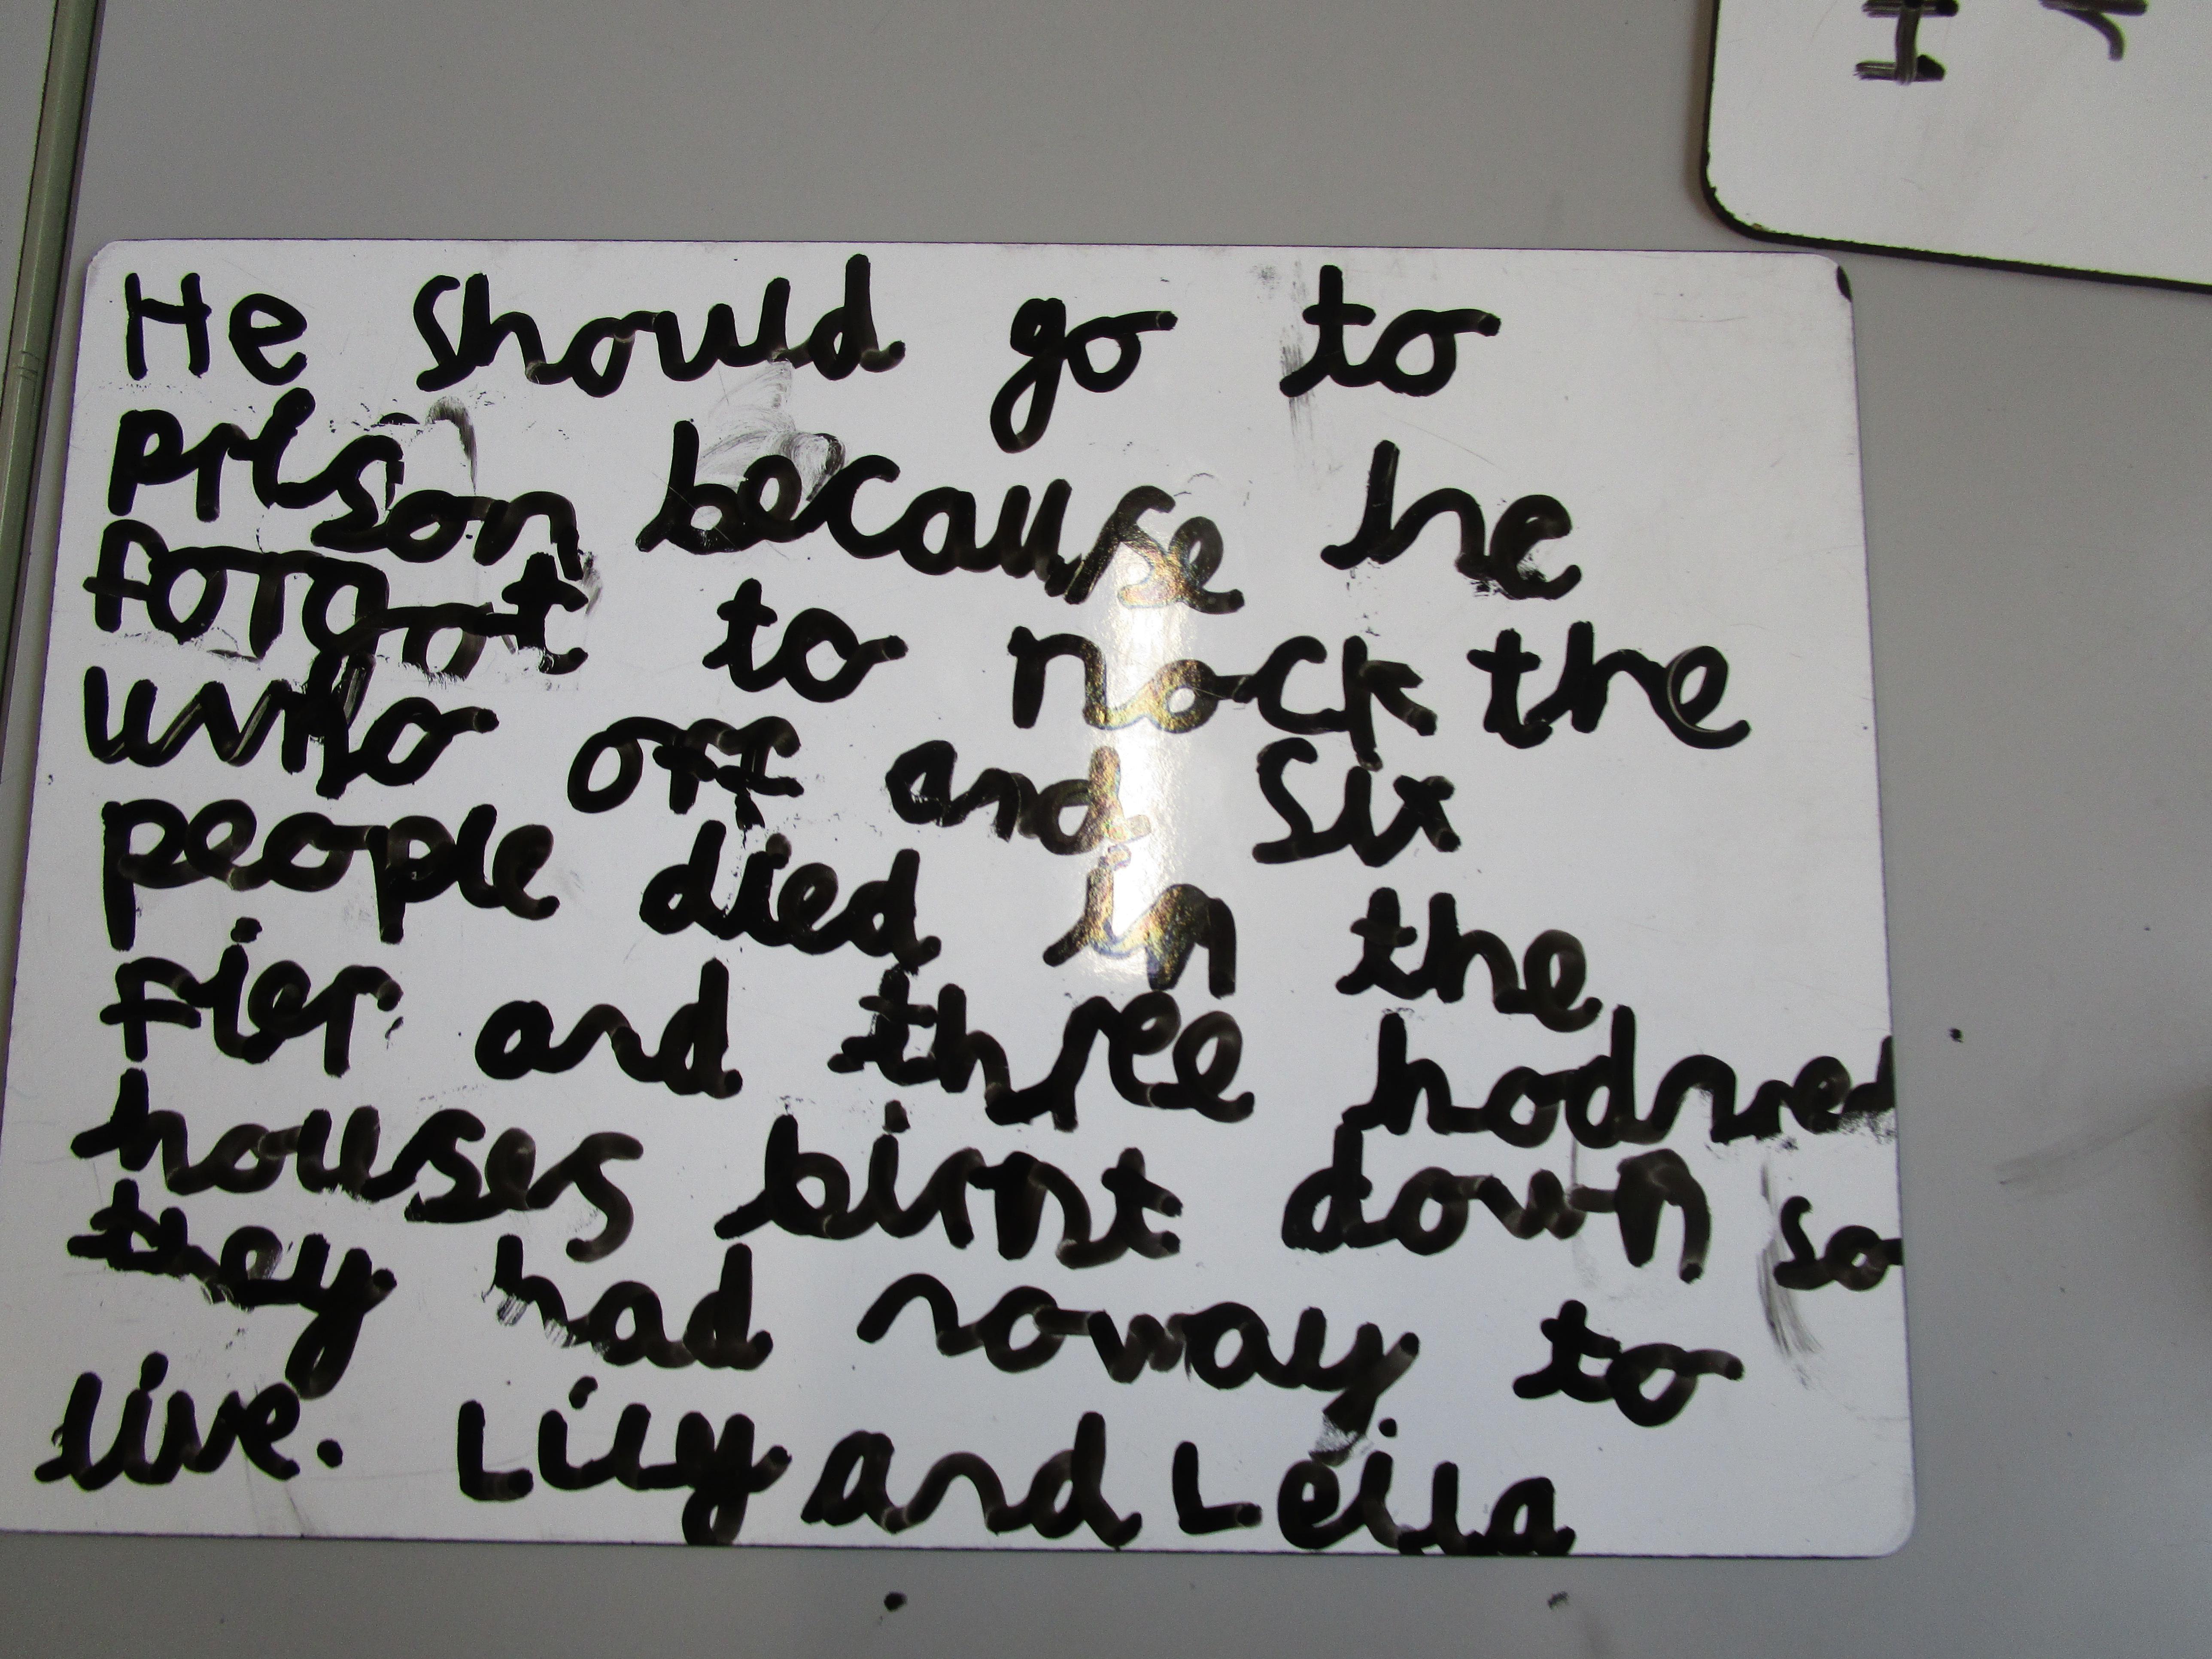 He should go to
prison because he
forgot to nock the
who off and six
people died in the
fier and three hodred
houses birnt down so
they had noway to
live. Lily and Leila